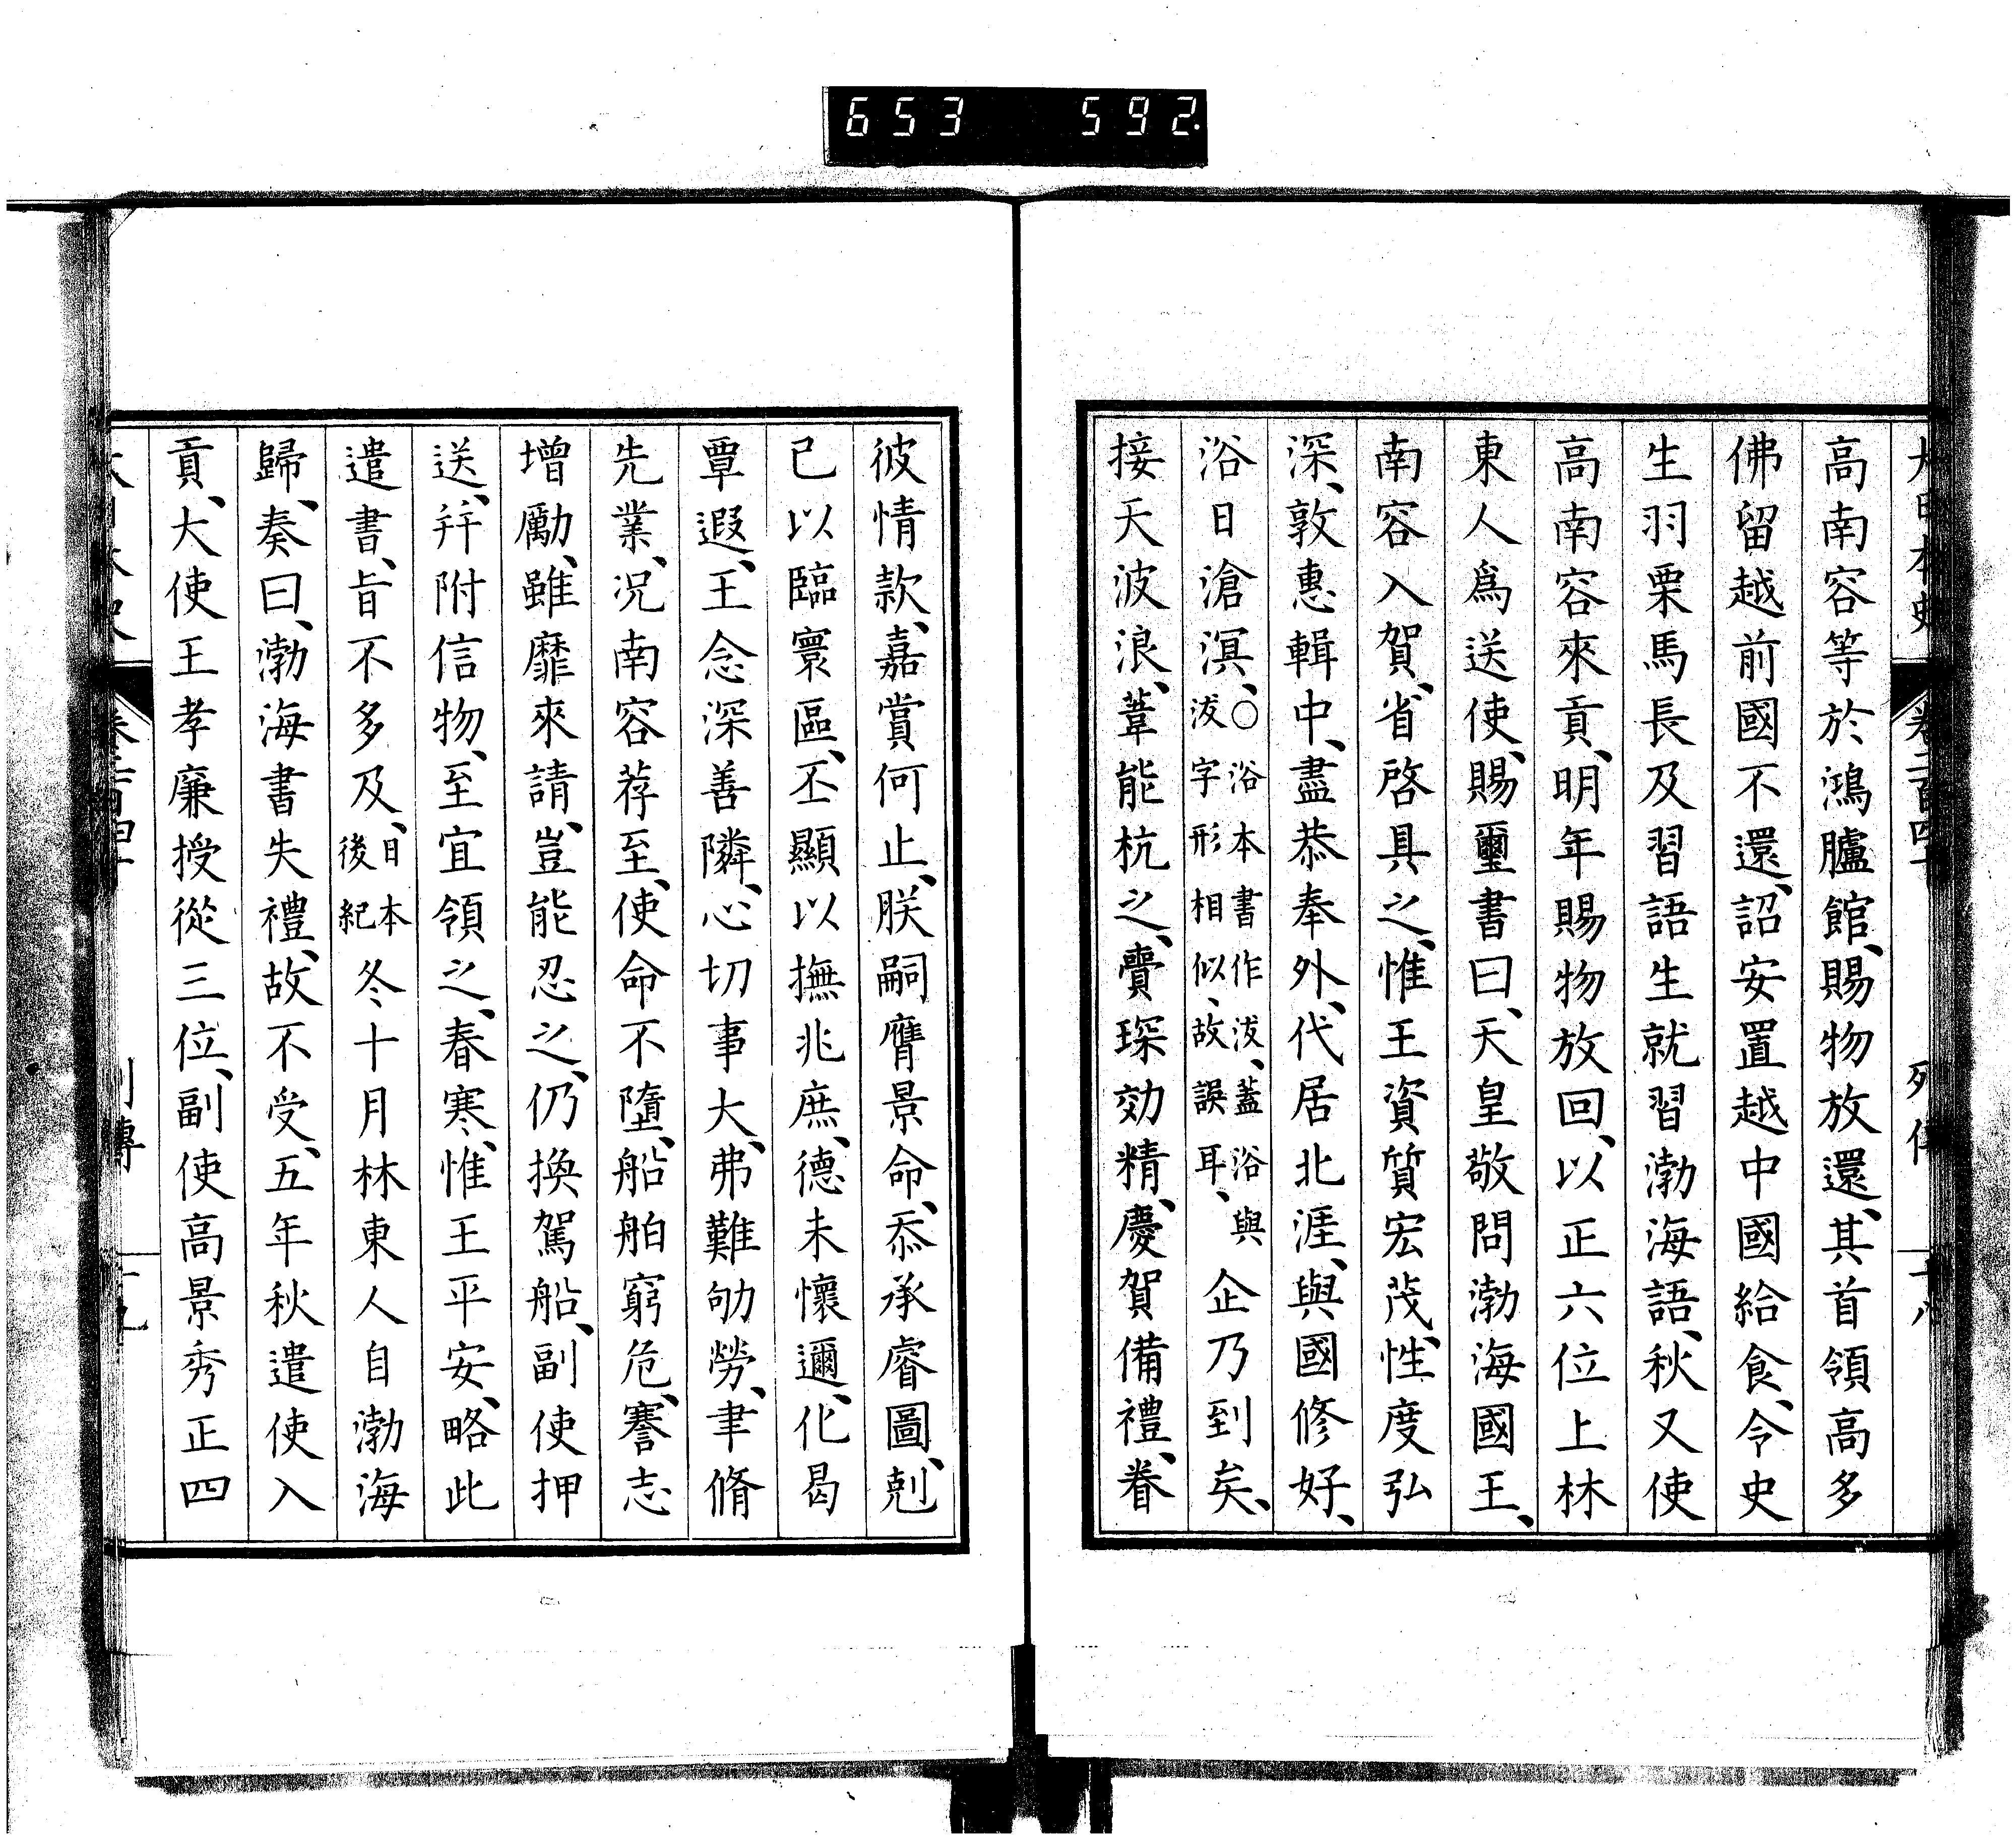 653 592.
大日本史 卷二百四十 列傳 十八
高南容等於鴻臚館、賜物放還、其首領高多
佛留越前國不還、詔安置越中國給食、令史
生羽栗馬長及習語生就習渤海語、秋又使
高南容來貢、明年賜物放回、以正六位上林
東人爲送使、賜璽書曰、天皇敬問渤海國王、
南容入賀、省啓具之、惟王資質宏茂、性度弘
深、敦惠輯中、盡恭奉外、代居北涯、與國修好、
浴日滄溟、○浴本書作泼、蓋浴與泼字形相似、故誤耳、企乃到矣、
接天波浪、葦能杭之、賷琛効精、慶賀備禮、眷
彼情款、嘉賞何止、朕嗣膺景命、忝承睿圖、剋
己以臨寰區、丕顯以撫兆庶、德未懷邇、化曷
覃遐、王念深善隣、心切事大、弗難劬勞、聿脩
先業、況南容荐至、使命不墮、船舶窮危、謇志
增勵、雖靡來請、豈能忍之、仍換駕船、副使押
送、幷附信物、至宜領之、春寒、惟王平安、略此
遣書、旨不多及、日本後紀冬十月林東人自渤海
歸、奏曰、渤海書失禮、故不受、五年秋遣使入
貢、大使王孝廉授從三位、副使高景秀正四